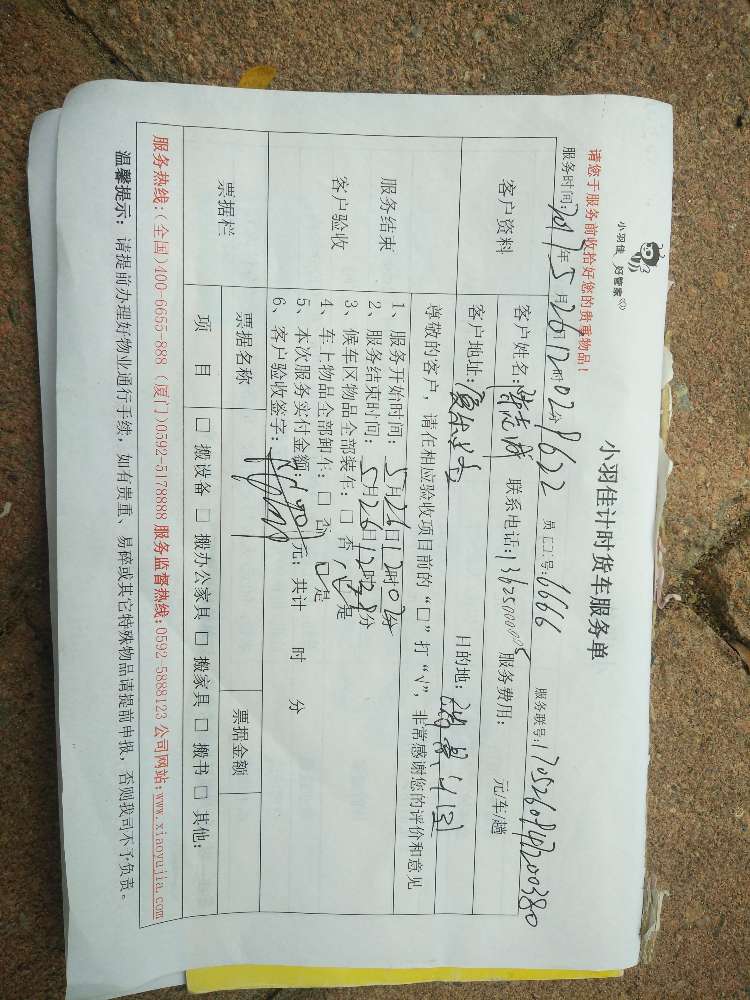 小羽佳 好管家
小羽佳计时货车服务单
请您于服务前收拾好您的贵重物品!
服务时间:2017年5月26日12时02分 9622 员工工号:6666 服务联号:1705260847200380
客户资料
客户姓名: 联系电话: 服务费用: 元/车/趟
客户地址: 目的地:
服务结束
客户验收
尊敬的客户,请在相应验收项目前的“□”打“√”,非常感谢您的评价和意见
1、服务开始时间:5月26日12时02分
2、服务结束时间:5月26日12时 分
3、候车区物品全部装车:□ 否 □ 是
4、车上物品全部卸车:□ 否 □ 是
5、本次服务实付金额: 元;共计 时 分
6、客户验收签字:
票据栏
票据名称 票据金额
项 目 □ 搬设备 □ 搬办公家具 □ 搬家具 □ 搬书 □ 其他:
服务热线:(全国)400-6655-888 (厦门)0592-5178888 服务监督热线:0592-5888123 公司网站:www.xiaoyujia.com
温馨提示:请提前办理好物业通行手续,如有贵重、易碎或其它特殊物品请提前申报,否则我司不予负责。